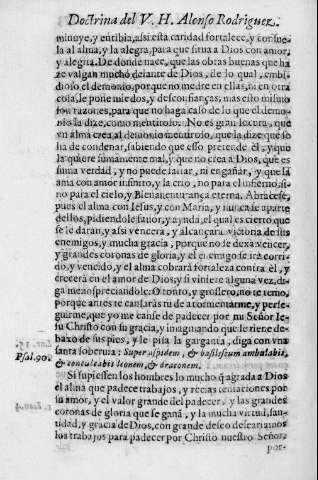 Doctrina del V. H. Alonso Rodriguez.
minuye, y entibia, assi esta caridad fortalece, y consue-
la al alma, y la alegra, para que sirua a Dios con amor,
y alegria. De donde nace, que las obras buenas que ha
ze valgan mucho delante de Dios, de lo qual, embi-
dioso el demonio, porque no medre en ellas, ni en otra
cosa, le pone miedos, y desconfianças, mas esto mismo
son razones, para que no haga caso de lo que el demo-
nio la dize, como mentiroso. No es gran locura, que
vn alma crea al demonio mentirolo, que la dize que se
ha de condenar, sabiendo que esso pretende él, y que
la quiere sumamente mal, y que no crea a Dios, que es
suma verdad, y no puede faltar, ni engañar, y que la
ama con amor infinito, y la crio, no para el infierno, si-
no para el cielo, y Bienauenturança eterna. Abracese,
pues el alma con Iesus, y con Maria, y nunca se aparte
dellos, pidiendole fauor, y ayuda, el qual es cierto que
se le daràn, y assi vencerà, y alcançarà victoria de sus
enemigos, y mucha gracia, porque no se dexa vencer,
y grandes coronas de gloria, y el enemigo se irà corri-
do, y vencido, y el alma cobrarà fortaleza contra èl, y
crecerà en el amor de Dios, y si viniere alguna vez, di-
ga menospreciandole: O tonto, y grossero, no te temo,
porque antes te cansaràs tu de atormentarme, y perse-
guirme, que yo me canse de padecer por mi Señor Ie-
su Christo con su gracia, y imaginando que le tiene de-
baxo de sus pies, y le pisa la garganta, diga con vna
santa soberuia: Super aspidem, & basiliscum ambulabis,
Psal. 90.
& conculcabis leonem, & draconem.
Si supiessen los hombres lo mucho q̃ agrada a Dios
el alma que padece trabajos, y recias tentaciones por
su amor, y el valor grande del padecer, y las grandes
coronas de gloria que se ganã, y la mucha virtud, san-
tidad, y gracia de Dios, con grande deseo deseariamos
los trabajos para padecer por Christo nuestro Señor,
por-